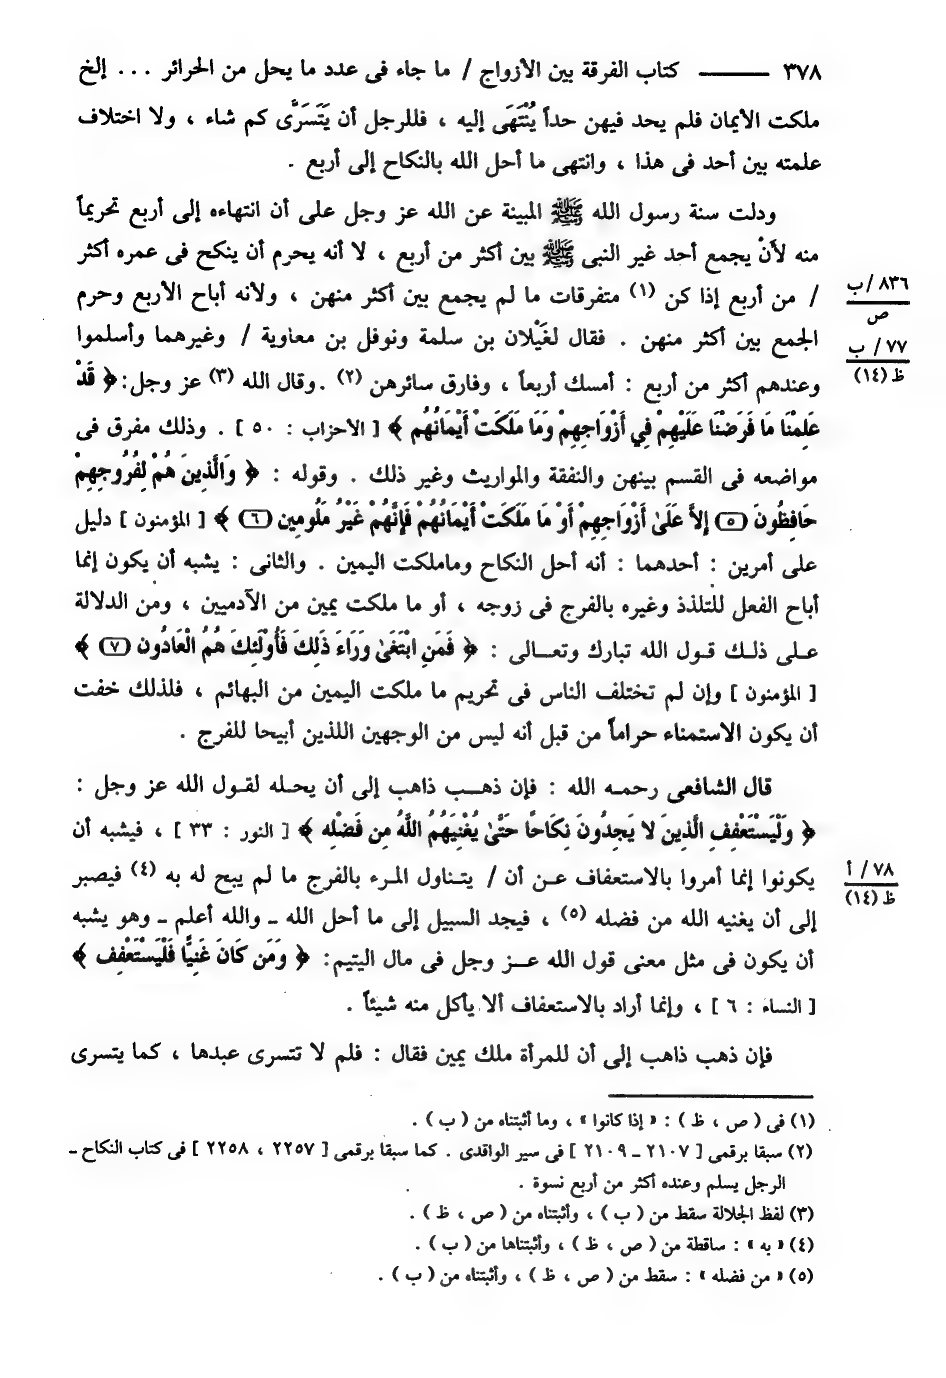 ٣٧٨ ــــــــ كتاب الفرقة بين الأزواج / ما جاء فى عدد ما يحل من الحرائر ... إلخ
ملكت الأيمان فلم يحد فيهن حداً يُنْتَهَى إليه ، فللرجل أن يَتَسَرَّى كم شاء ، ولا اختلاف
علمته بين أحد فى هذا ، وانتهى ما أحل الله بالنكاح إلى أربع .
ودلت سنة رسول الله ﷺ المبينة عن الله عز وجل على أن انتهاءه إلى أربع تحريماً
منه لأنْ يجمع أحد غير النبى ﷺ بين أكثر من أربع ، لا أنه يحرم أن ينكح فى عمره أكثر
/ من أربع إذا كن (١) متفرقات ما لم يجمع بين أكثر منهن ، ولأنه أباح الأربع وحرم
٨٣٦/ب
ص
الجمع بين أكثر منهن . فقال لغَيْلان بن سلمة ونوفل بن معاوية / وغيرهما وأسلموا
٧٧ / ب
ظ (١٤)
وعندهم أكثر من أربع : أمسك أربعاً ، وفارق سائرهن (٢) .وقال الله (٣) عز وجل:﴿ قَدْ
عَلِمْنَا مَا فَرَضْنَا عَلَيْهِمْ فِي أَزْوَاجِهِمْ وَمَا مَلَكَتْ أَيْمَانُهُمْ ﴾ [ الأحزاب : ٥٠ ] . وذلك مفرق فى
مواضعه فى القسم بينهن والنفقة والمواريث وغير ذلك . وقوله : ﴿ وَالَّذِينَ هُمْ لِفُرُوجِهِمْ
حَافِظُونَ (٥) إِلاَّ عَلَىٰ أَزْوَاجِهِمْ أَوْ مَا مَلَكَتْ أَيْمَانُهُمْ فَإِنَّهُمْ غَيْرُ مَلُومِين (٦) ﴾ [ المؤمنون ] دليل
على أمرين : أحدهما : أنه أحل النكاح وماملكت اليمين . والثانى : يشبه أن يكون إنما
أباح الفعل للتلذذ وغيره بالفرج فى زوجه ، أو ما ملكت يمين من الآدميين ، ومن الدلالة
عـلى ذلـك قـول الله تبارك وتعـالى : ﴿ فَمَنِ ابْتَغَىٰ وَرَاءَ ذَلِكَ فَأُولَئِكَ هُمُ الْعَادُونَ (٧) ﴾
[ المؤمنون ] وإن لم تختلف الناس فى تحريم ما ملكت اليمين من البهائم ، فلذلك خفت
أن يكون الاستمناء حراماً من قبل أنه ليس من الوجهين اللذين أبيحا للفرج .
قال الشافعى رحمـه الله : فإن ذهـب ذاهب إلى أن يحـله لقـول الله عز وجل :
﴿ وَلْيَسْتَعْفِفِ الَّذِينَ لا يَجِدُونَ نِكَاحًا حَتَّىٰ يُغْنِيَهُمُ اللَّهُ مِن فَضْلِه ﴾ [ النور : ٣٣ ] ، فيشبه أن
يكونوا إنما أمروا بالاستعفاف عـن أن / يتـناول المـرء بالفرج ما لم يبح له به (٤) فيصبر
٧٨ / أ
ظ (١٤)
إلى أن يغنيه الله من فضله (٥) ، فيجد السبيل إلى ما أحل الله ـ والله أعلم ـ وهو يشبه
أن يكون فى مثل معنى قول الله عـز وجل فى مال اليتيم: ﴿ وَمَن كَانَ غَنِيًّا فَلْيَسْتَعْفِف ﴾
[ النساء : ٦ ] ، وإنما أراد بالاستعفاف ألا يأكل منه شيئاً .
فإن ذهب ذاهب إلى أن للمرأة ملك يمين فقال : فلم لا تتسرى عبدها ، كما يتسرى
(١) فى ( ص ، ظ ) : « إذا كانوا » ، وما أثبتناه من ( ب ) .
(٢) سبقا برقمى [ ٢١٠٧ ـ ٢١٠٩ ] فى سير الواقدى . كما سبقا برقمى [ ٢٢٥٧ ، ٢٢٥٨ ] فى كتاب النكاح ـ
الرجل يسلم وعنده أكثر من أربع نسوة .
(٣) لفظ الجلالة سقط من ( ب ) ، وأثبتناه من ( ص ، ظ ) .
(٤) « به » : ساقطة من ( ص ، ظ ) ، وأثبتناها من ( ب ) .
(٥) « من فضله » : سقط من ( ص ، ظ ) ، وأثبتناه من ( ب ) .